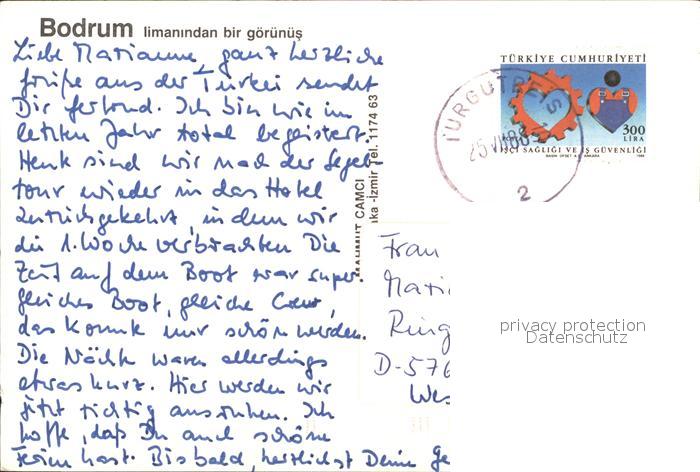 Bodrum limanından bir görünüş
Liebe Marianne, ganz herzliche
Grüße aus der Türkei sendet
Dir Gerlind. Ich bin wie im
letzten Jahr total begeistert.
Heute sind wir nach der Segel
tour wieder in das Hotel
zurückgekehrt, in dem wir
die 1. Woche verbrachten. Die
Zeit auf dem Boot war super.
gleiches Boot, gleiche Crew,
das konnte nur schön werden.
Die Nächte waren allerdings
etwas kurz. Hier werden wir
jetzt richtig ausruhen. Ich
hoffe, daß Du auch schöne
Ferien hast. Bis bald, herzlichst Deine Ge
CAMCI
-İzmir Tel. 1174 63
TÜRKİYE CUMHURİYETİ
300
LİRA
İŞÇİ SAĞLIĞI VE İŞ GÜVENLİĞİ
TURGUTREİS
2
Frau
Mari
Ring
D-576
Wes
privacy protection
Datenschutz